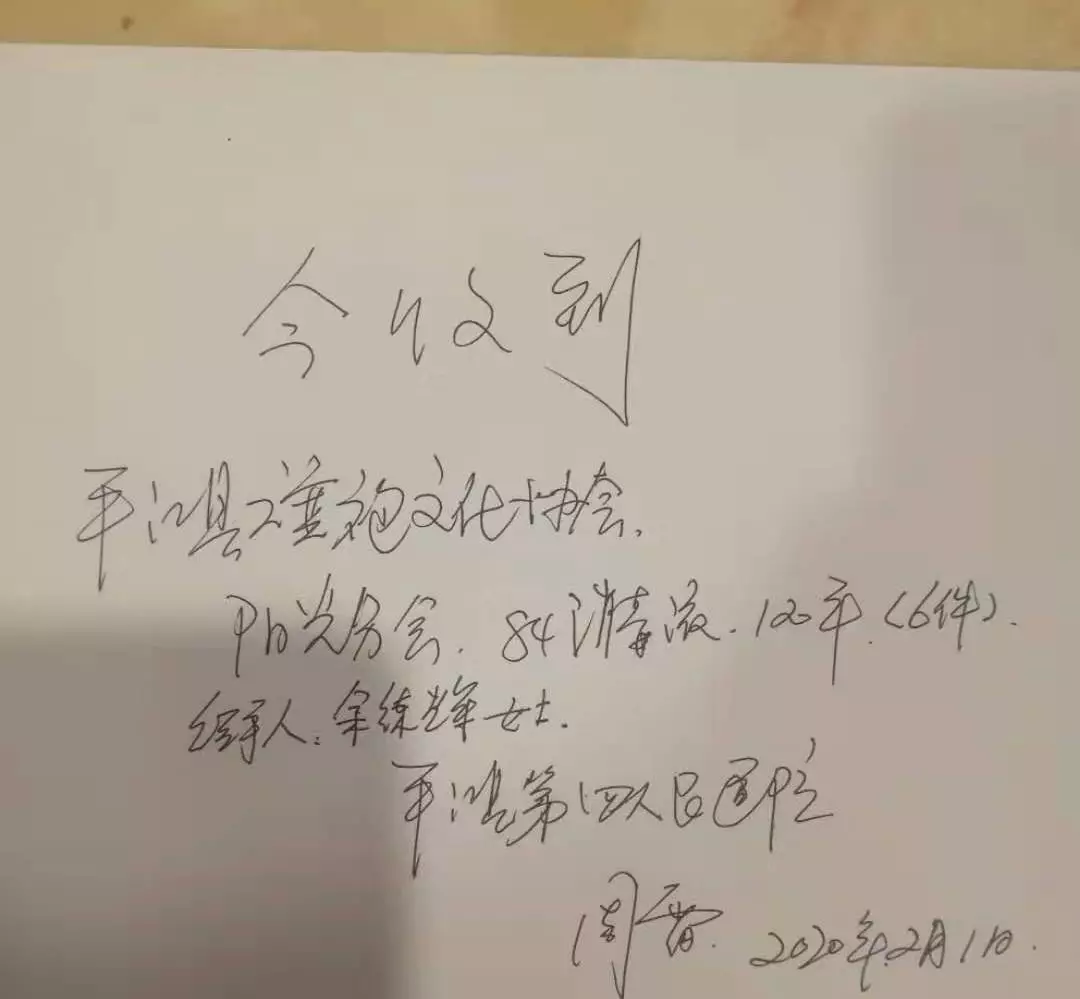 今收到
平江县旗袍文化协会.
阳光分会. 84消毒液. 120斤.(6件).
经手人:余练辉女士.
平江县第四人民医院
周雷. 2020年2月1日.